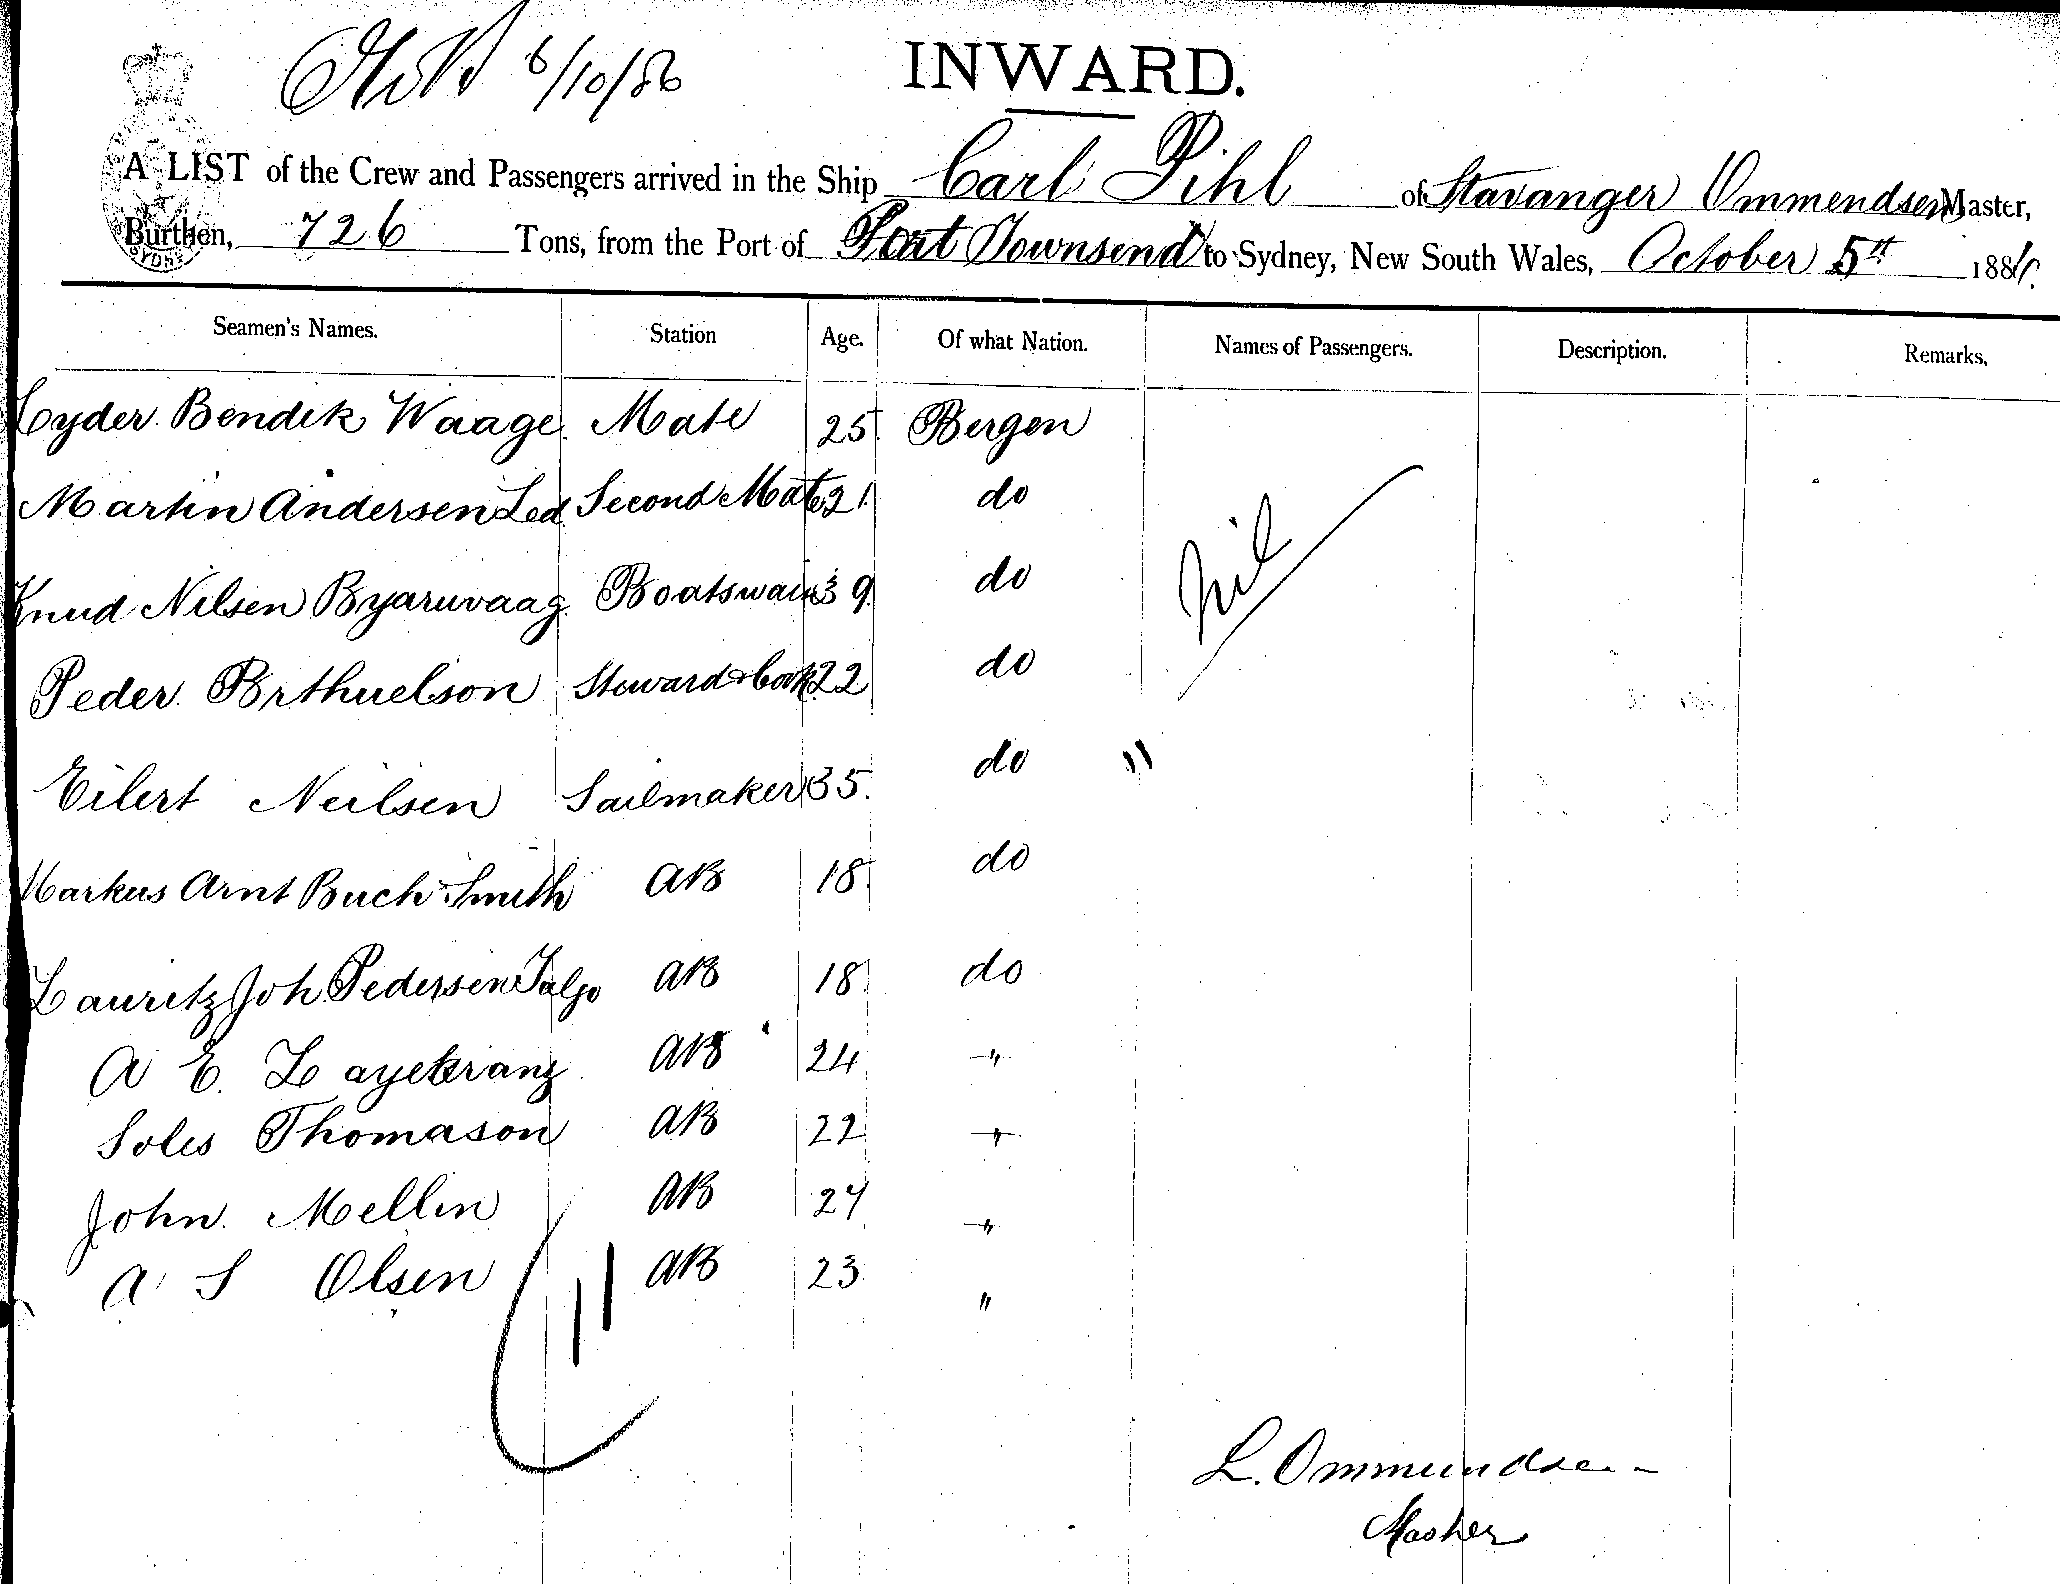 6/10/86
INWARD.
A LIST of the Crew and Passengers arrived in the Ship Carl Pihl of Stavanger Ommendsen Master,
Burthen, 726 Tons, from the Port of Port Townsend to Sydney, New South Wales, October 5th 1886.
Seamen's Names. Station Age. Of what Nation. Names of Passengers. Description. Remarks.
Lyder Bendik Waage Mate 25 Bergen
Martin Andersen Led Second Mate 21 do
Knud Nilsen Byaruvaag Boatswain 39 do
nil
Peder Brthuelson Steward & Cook 22 do
Eilert Neilsen Sailmaker 35. do "
Markus Arnt Buch Smith AB 18 do
Lauritz Joh Pedersen Talgo AB 18 do
A E. Layekranz AB 24 "
Soles Thomason AB 22 "
John Mellin AB 24 "
A S Olsen AB 23 "
11
L. Ommundsen
Master
SYDNEY